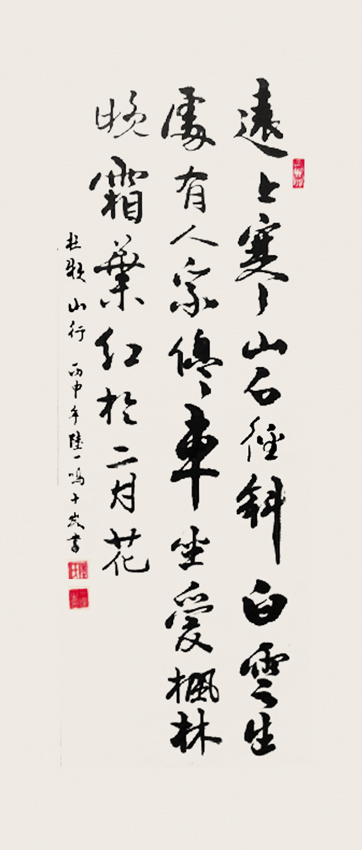 遠上寒山石徑斜白雲生
處有人家停車坐愛楓林
晚霜葉紅於二月花
杜牧山行丙申年陸一鳴十歲書